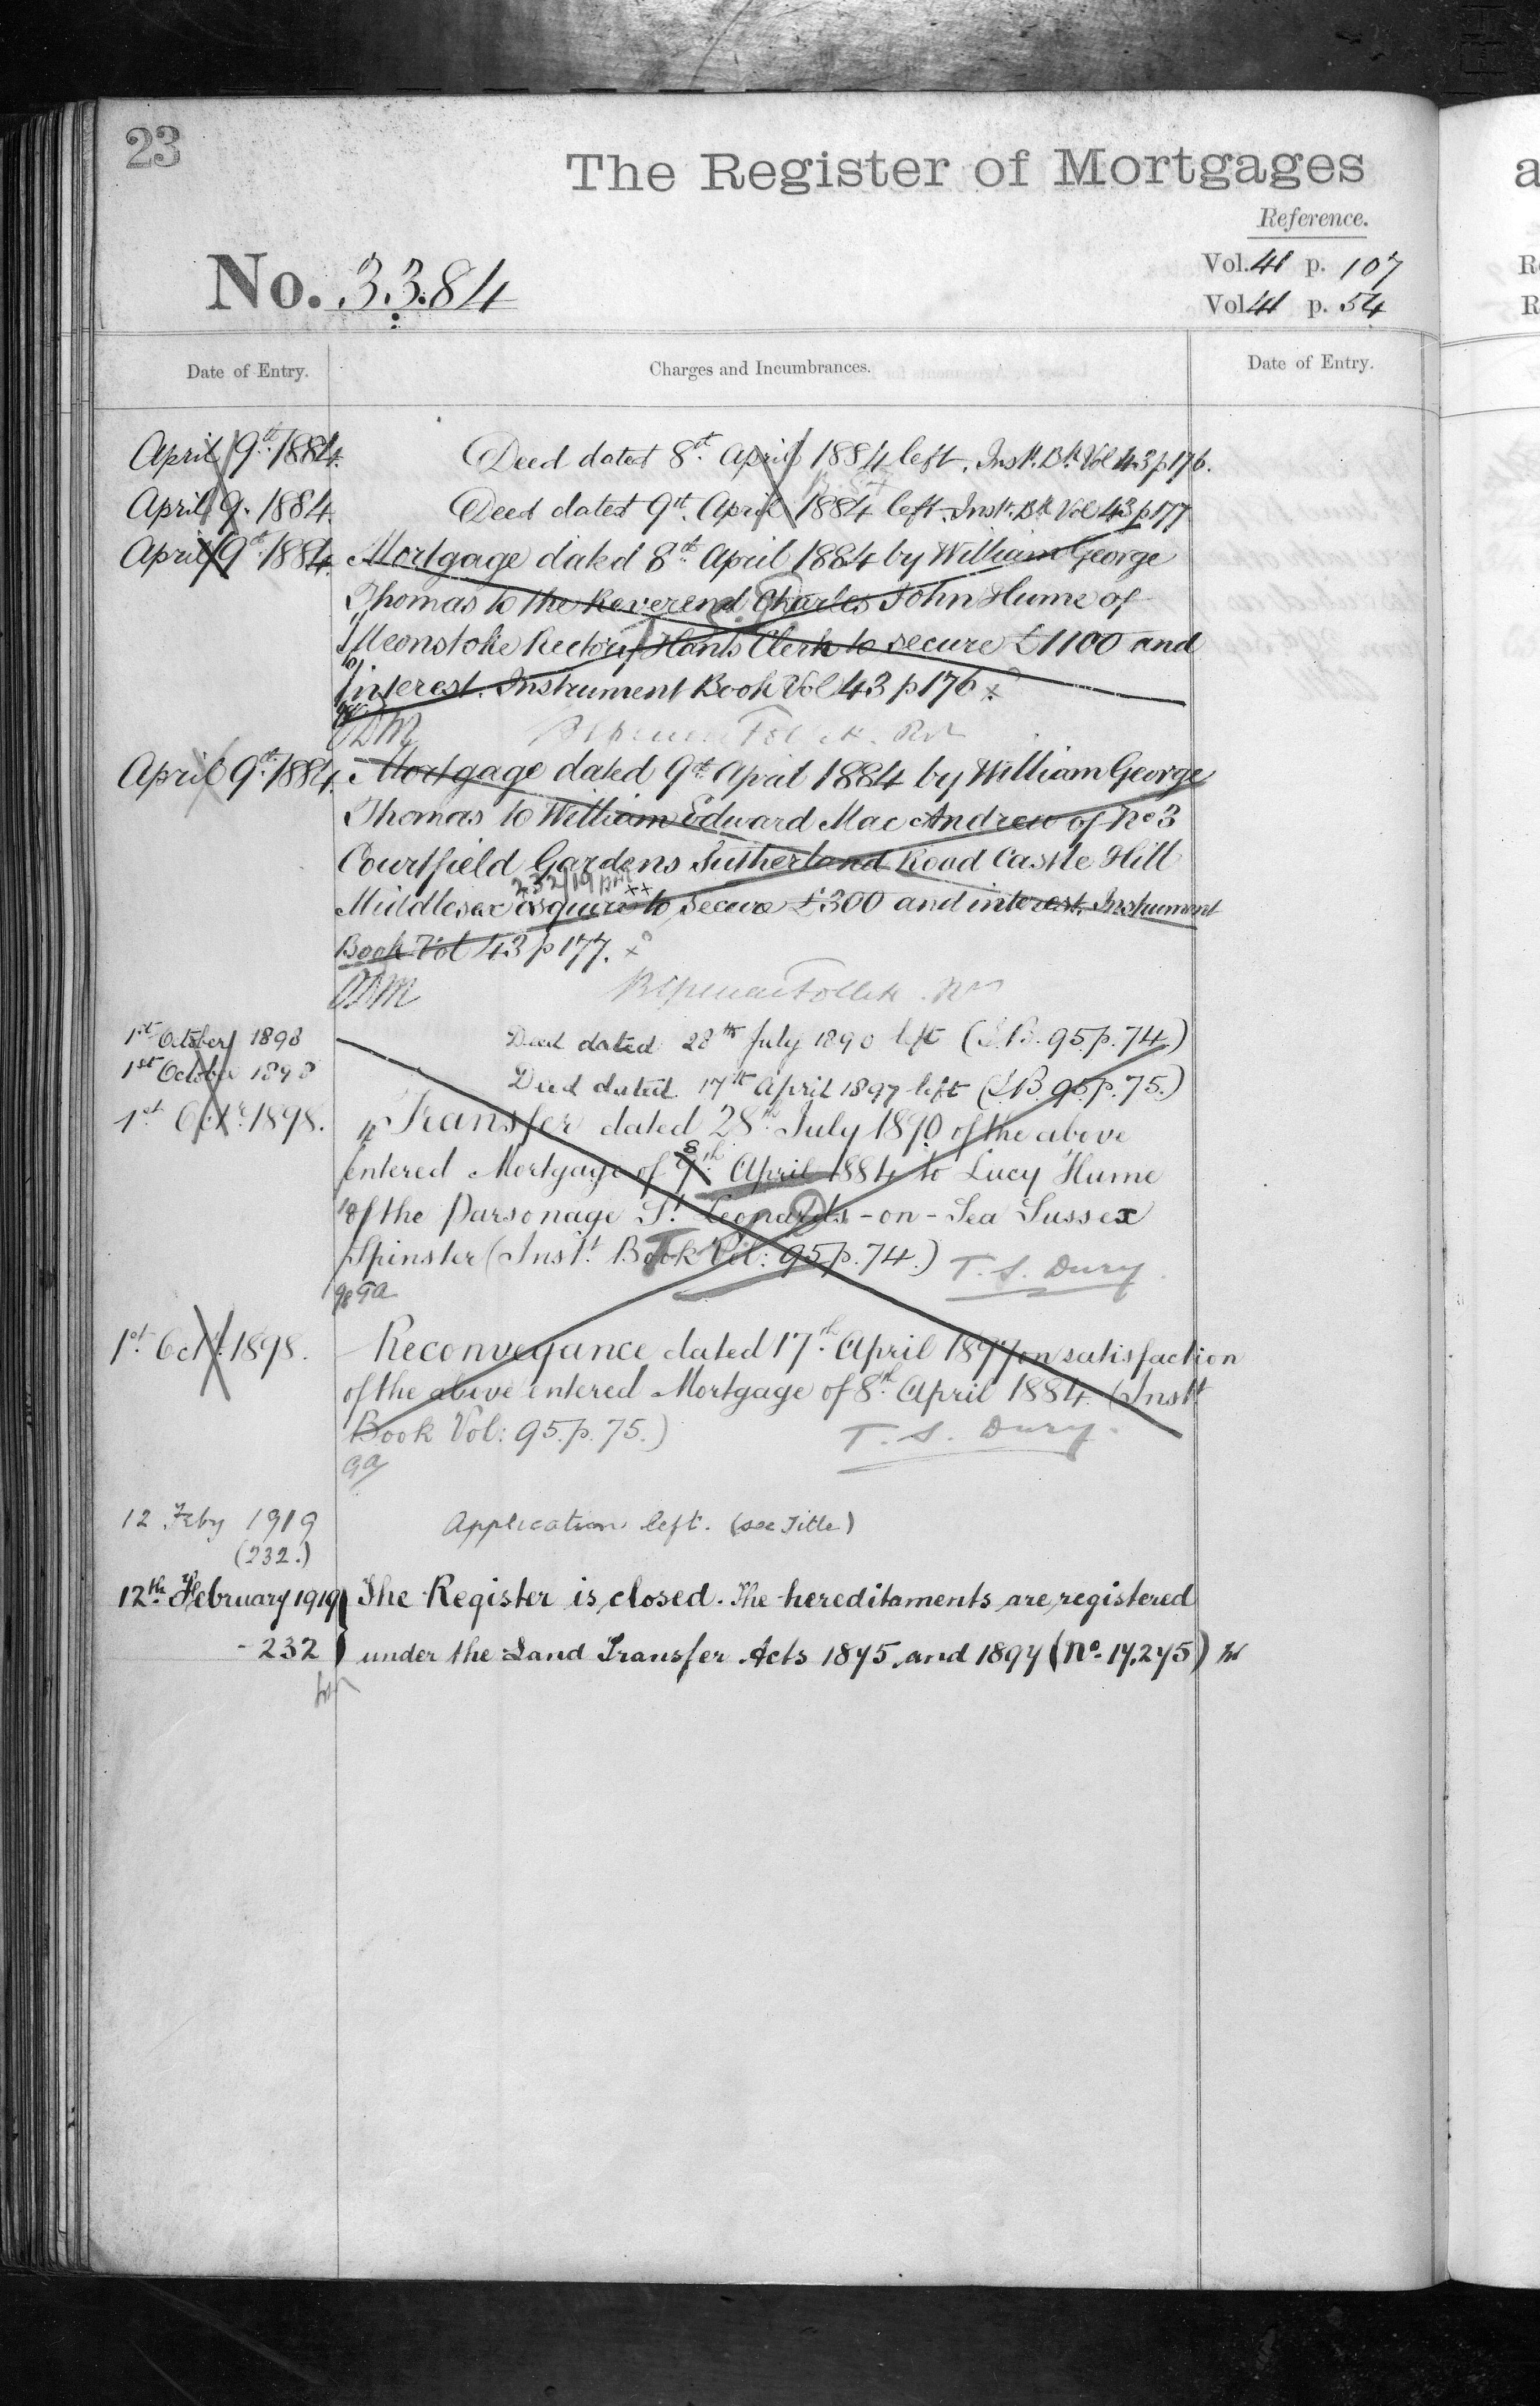 23
The Register of Mortgages
Reference.
No. 3384
Vol. 41 p. 107
Vol. 41 p. 54
Date of Entry. Charges and Incumbrances. Date of Entry.
April 9th 1884. Deed dated 8th April 1884 left. Inst. Bk Vol 43 p 176.
April 9. 1884. Deed dated 9th April 1884 left. Inst. Bk Vol 43 p 177
April 9th 1884. Mortgage dated 8th April 1884 by William George
Thomas to the Reverend Charles John Hume of
Meonstoke Rectory Hants Clerk to secure £1100 and
interest. Instrument Book Vol 43 p 176 x
April 9th 1884. Mortgage dated 9th April 1884 by William George
Thomas to William Edward Mac Andrew of No 3
Courtfield Gardens Sutherland Road Castle Hill
232/19
Middlesex esquire to secure £300 and interest. Instrument
Book Vol 43 p 177. x
1st October 1898 Deed dated 28th July 1890 left (I.B. 95. p. 74.)
1st October 1898 Deed dated 17th April 1897 left (I.B. 95. p. 75.)
1st Octr. 1898. Transfer dated 28th July 1890 of the above
8
entered Mortgage of 9th April 1884 to Lucy Hume
of the Parsonage St. Leonards-on-Sea Sussex
Spinster (Inst. Book Vol: 95 p. 74.) T. S. Dury.
98 GA
1st Octr. 1898. Reconveyance dated 17th April 1897 on satisfaction
of the above entered Mortgage of 8th April 1884. (Inst
Book Vol: 95. p. 75.) T. S. Dury.
GA
12 Feby 1919 Application left. (see Title)
(232.)
12th February 1919 The Register is closed. The hereditaments are registered
- 232 under the Land Transfer Acts 1875 and 1897 (No. 17,275)
a
R
R